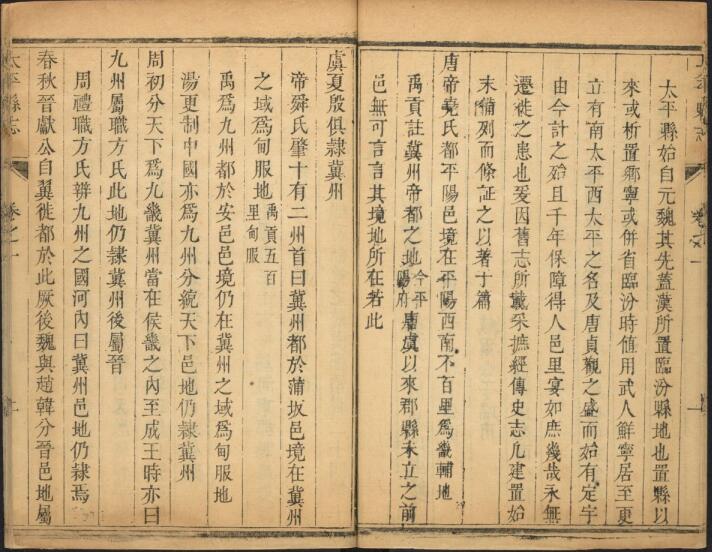 太平縣始自元魏其先蓋漢所置臨汾縣地也置縣以
來或析置鄉寧或併省臨汾時值用武人鮮寧居至更
立有南太平西太平之名及唐貞觀之盛而始有定宇
由今計之殆且千年保障得人邑里宴如庶幾哉永無
遷徙之患也爰因舊志所載采摭經傳史志凡建置始
末備列而條証之以著于篇
唐帝堯氏都平陽邑境在平陽西南不百里爲畿輔地
禹貢註冀州帝都之地今平陽府唐虞以來郡縣未立之前
邑無可言言其境地所在若此
虞夏殷俱隸冀州
帝舜氏肇十有二州首曰冀州都於蒲坂邑境在冀州
之域爲甸服地禹貢五百里甸服
禹爲九州都於安邑邑境仍在冀州之域爲甸服地
湯更制中國亦爲九州分統天下邑地仍隸冀州
周初分天下爲九畿冀州當在侯畿之內至成王時亦曰
九州屬職方氏此地仍隸冀州後屬晉
周禮職方氏辨九州之國河內曰冀州邑地仍隸焉
春秋晉獻公自翼徙都於此厥後魏與趙韓分晉邑地屬
太平縣志
卷之一